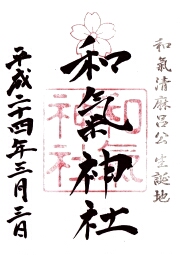 和氣清麻呂公生誕地
和氣神社
平成二十四年三月三日
和氣神社